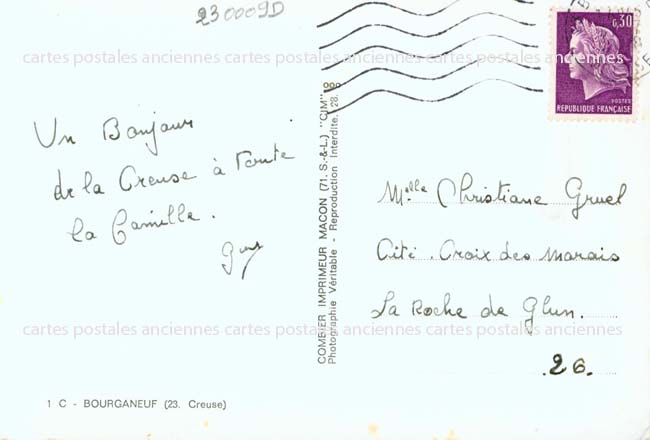 230009D
0,30
POSTES
REPUBLIQUE FRANÇAISE
cartes postales anciennes cartes postales anciennes cartes postales anciennes
Un Bonjour
de la Creuse à toute
la famille.
Guy
COMBIER IMPRIMEUR MACON (71. S.-&-L.) "CIM"
Photographie Véritable - Reproduction Interdite.
Melle Christiane Gruel
Cité. Croix des Marais
La Roche de Glun.
26.
cartes postales anciennes cartes postales anciennes cartes postales anciennes
1 C - BOURGANEUF (23. Creuse)